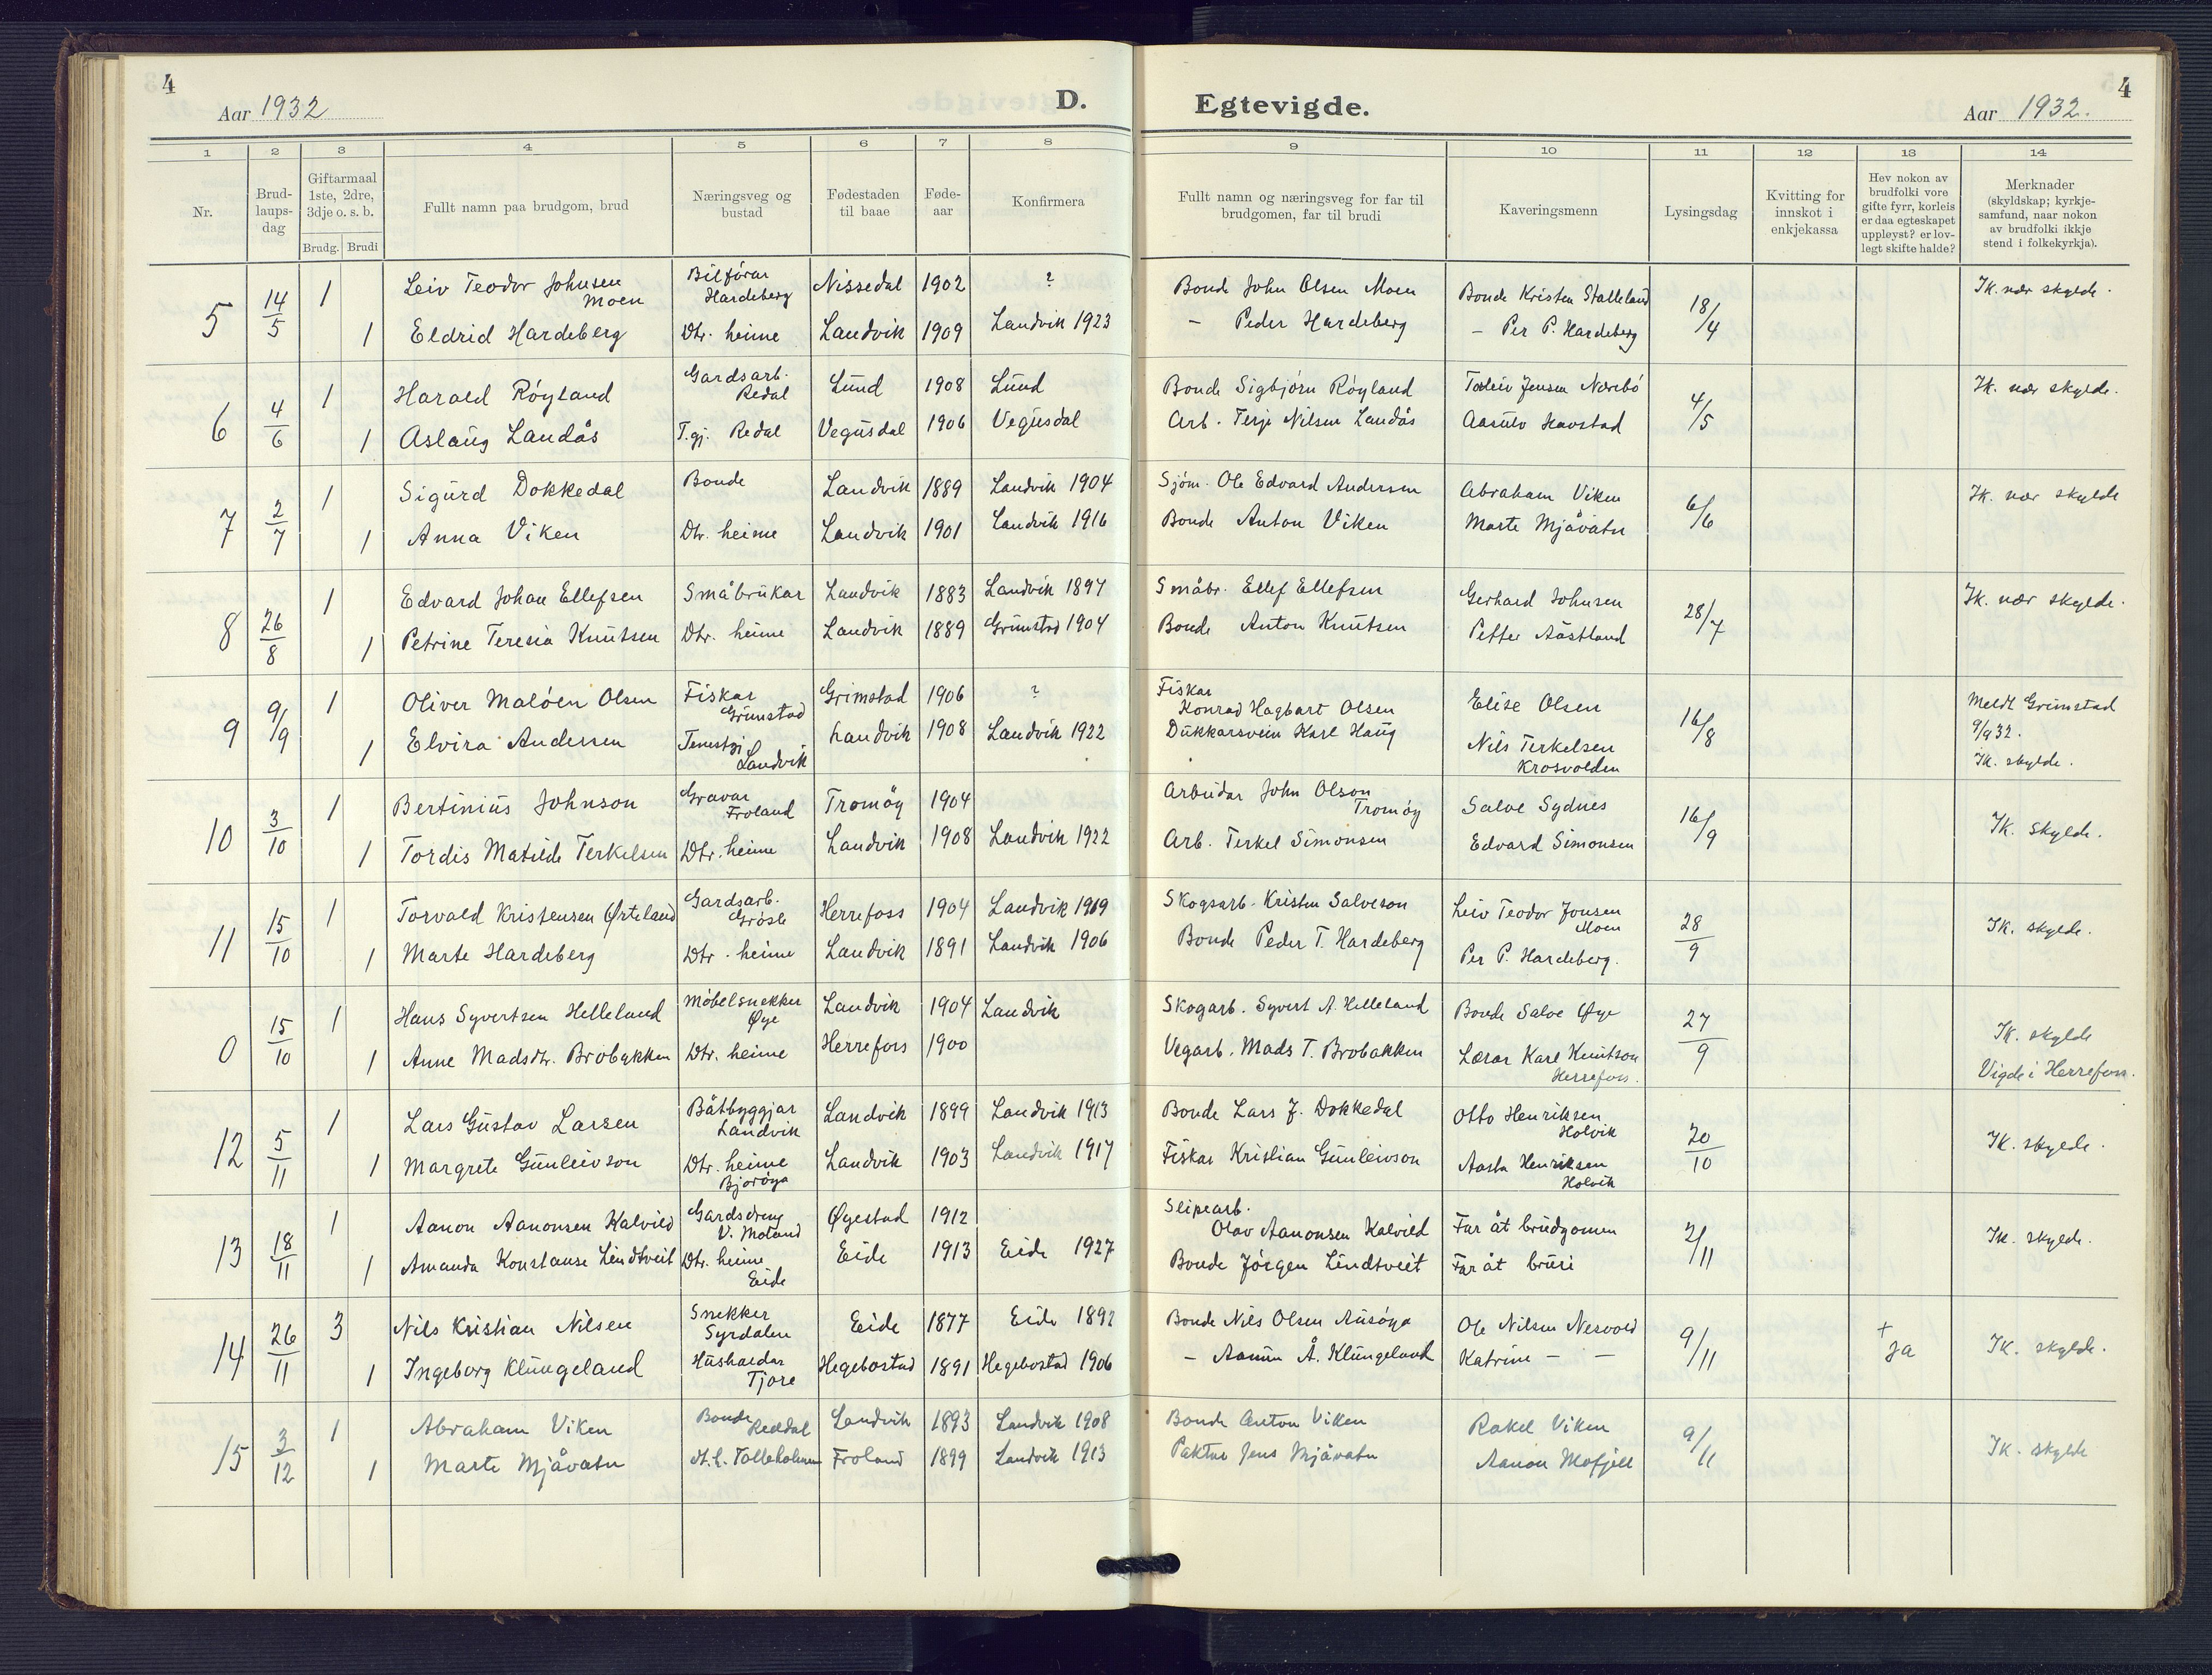 4
Aar 1932
D.
Egtevigde.
Aar 1932.
4
1 2 3 4 5 6 7 8 9 10 11 12 13 14
Nr.
Brud-
laups-
dag
Giftarmaal
1ste, 2dre,
3dje o. s. b.
Brudg. Brudi
Fullt namn paa brudgom, brud
Næringsveg og
bustad
Fødestaden
til baae
Føde-
aar
Konfirmera
Fullt namn og næringsveg for far til
brudgomen, far til brudi
Kaveringsmenn
Lysingsdag
Kvitting for
innskot i
enkjekassa
Hev nokon av
brudfolki vore
gifte fyrr, korleis
er daa egteskapet
uppløyst? er lov-
legt skifte halde?
Merknader
(skyldskap; kyrkje-
samfund, naar nokon
av brudfolki ikkje
stend i folkekyrkja).
5 14/5 1 Leiv Teodor Johnsen Moen Bilførar Hardeberg Nissedal 1902 ? Bonde John Olsen Moen Bonde Kristen Stalleland 18/4 Ik. nær skylde.
1 Eldrid Hardeberg Dtr. heime Landvik 1909 Landvik 1923 – Peder Hardeberg – Per P. Hardeberg
6 4/6 1 Harald Röyland Gardsarb. Redal Lund 1908 Lund Bonde Sigbjörn Röyland Taleiv Jensen Nærebö 4/5 Ik. nær skylde.
1 Aslaug Landås T.gj. Redal Vegusdal 1906 Vegusdal Arb. Terje Nilsen Landås Aasulv Havstad
7 2/7 1 Sigurd Dokkedal Bonde Landvik 1889 Landvik 1904 Sjöm. Ole Edvard Andersen Abraham Viken 6/6 Ik. nær skylde
1 Anna Viken Dtr. heime Landvik 1901 Landvik 1916 Bonde Anton Viken Marte Mjåvatn
8 26/8 1 Edvard Johan Ellefsen Småbrukar Landvik 1883 Landvik 1897 Småbr. Ellef Ellefsen Gerhard Johnsen 28/7 Ik. nær skylde.
1 Petrine Teresia Knutsen Dtr. heime Landvik 1889 Grimstad 1904 Bonde Anton Knutsen Petter Aastland
9 9/9 1 Oliver Malöen Olsen Fiskar Grimstad Grimstad 1906 ? Fiskar Konrad Hagbart Olsen Elise Olsen 16/8 Meldt Grimstad 9/9 32.
1 Elvira Andersen Tenestgj Landvik Landvik 1908 Landvik 1922 Dukkarsvein Karl Haug Nils Terkelsen Krosvolden Ik. skylde.
10 3/10 1 Bertinius Johnson Gravar Froland Tromöy 1904 Arbeidar John Olson Tromöy Salve Sydnes 16/9 Ik. skylde.
1 Tordis Matilde Terkelsen Dtr. heime Landvik 1908 Landvik 1922 Arb. Terkel Simonsen Edvard Simonsen
11 15/10 1 Torvald Kristensen Örteland Gardsarb. Grösle Herrefoss 1904 Landvik 1919 Skogsarb. Kristen Salveson Leiv Teodor Jonsen Moen 28/9 Ik. skylde.
1 Marte Hardeberg Dtr. heime Landvik 1891 Landvik 1906 Bonde Peder T. Hardeberg Per P. Hardeberg.
0 15/10 1 Hans Syvertsen Helleland Möbelsnekker Øye Landvik 1904 Landvik Skogarb. Syvert A. Helleland Bonde Salve Øye 27/9 Ik. skylde
1 Anne Madsdtr. Brobakken Dtr. heime Herrefoss 1900 Vegarb. Mads T. Brobakken Lærar Karl Knutson Herrefoss. Vigde i Herrefoss.
12 5/11 1 Lars Gustav Larsen Båtbyggjar Landvik Landvik 1899 Landvik 1913 Bonde Lars J. Dokkedal Otto Henriksen Holvik 20/10 Ik. skylde.
1 Margrete Gunleivson Dtr. heime Bjoröya Landvik 1903 Landvik 1917 Fiskar Kristian Gunleivson Aasta Henriksen Holvik
13 18/11 1 Aanon Aanonsen Kalvild Gardsdreng V. Moland Øyestad 1912 Slipearb. Olav Aanonsen Kalvild Far åt brudgomen 2/11 Ik. skylde.
1 Amanda Konstanse Lindtveit Dtr. heime Eide Eide 1913 Eide 1927 Bonde Jörgen Lindtveit Far åt brudi
14 26/11 3 Nils Kristian Nilsen Snekker Syrdalen Eide 1877 Eide 1892 Bonde Nils Olsen Ausöya Ole Nilsen Nesvold 9/11 + Ja Ik. skylde.
1 Ingeborg Klungeland Hushaldar Tjore Hegebostad 1891 Hegebostad 1906 – Aanen Å. Klungeland Katrine – –
15 3/12 1 Abraham Viken Bonde Reddal Landvik 1893 Landvik 1908 Bonde Anton Viken Rakel Viken 9/11 Ik. skylde
1 Marte Mjåvatn Froland 1899 Landvik 1913 Paktar Jens Mjåvatn Aanon Mofjell